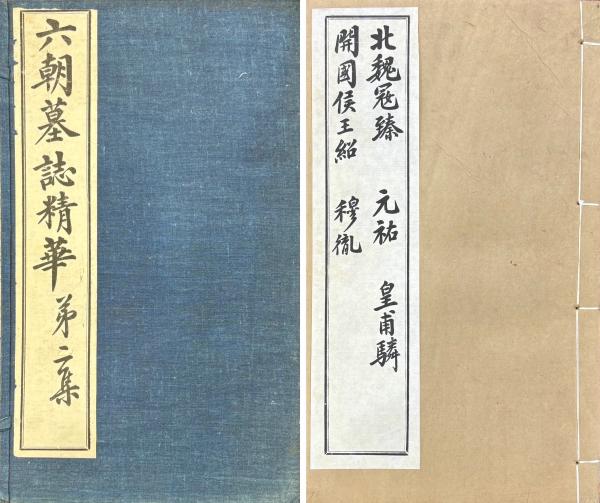 六朝墓誌精華 第二集
北魏寇臻 元祐 皇甫驎
開國侯王紹 穆胤